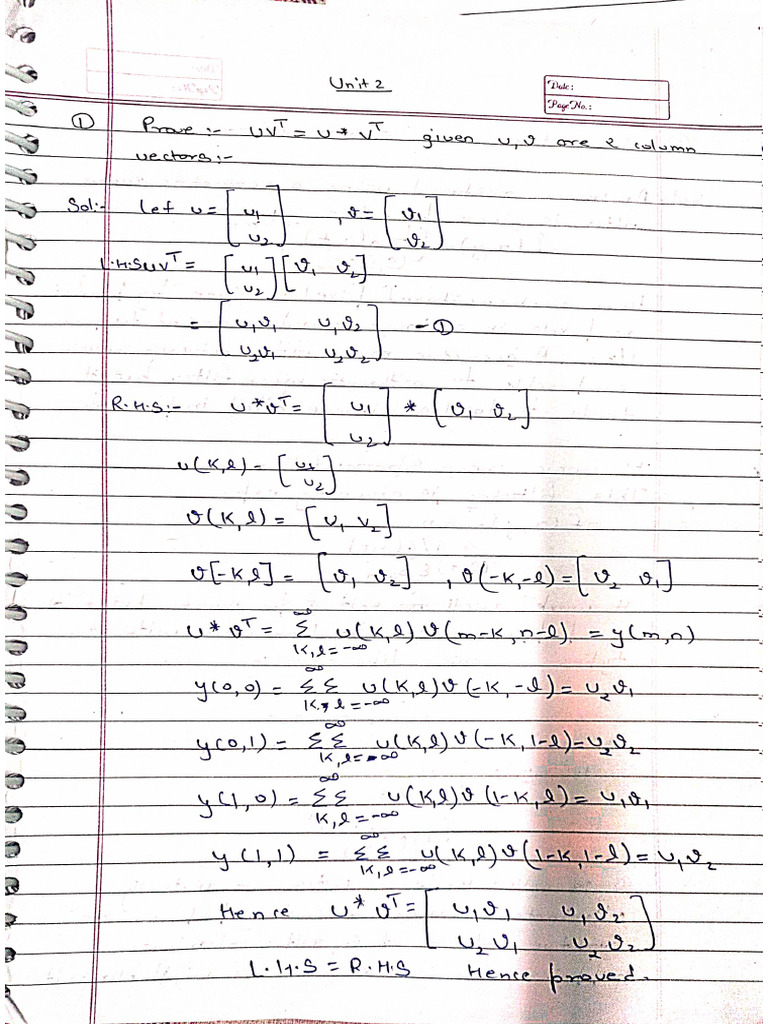 Unit 2
Date:
Page No.:
① Prove :- uvᵀ = u * vᵀ given u, v are 2 column
vectors :-
Sol:- Let u = [u₁ u₂] , v = [v₁ v₂]
L.H.S uvᵀ = [u₁ u₂] [v₁ v₂]
= [u₁v₁ u₁v₂ u₂v₁ u₂v₂] - ①
R.H.S :- u * vᵀ = [u₁ u₂] * [v₁ v₂]
u(k,l) - [u₁ u₂]
v(k,l) = [v₁ v₂]
v[-k,l] = [v₁ v₂] , v(-k,-l) = [v₂ v₁]
u * vᵀ = ∞ Σ k,l=-∞ u(k,l) v(m-k, n-l) = y(m,n)
y(0,0) = ∞ ΣΣ k,l=-∞ u(k,l) v(-k,-l) = u₂v₁
y(0,1) = ∞ ΣΣ k,l=-∞ u(k,l) v(-k,1-l) = u₂v₂
y(1,0) = ∞ ΣΣ k,l=-∞ u(k,l) v(1-k,l) = u₁v₁
y(1,1) = ∞ ΣΣ k,l=-∞ u(k,l) v(1-k,1-l) = u₁v₂
Hence u * vᵀ = [u₁v₁ u₁v₂ u₂v₁ u₂v₂]
L.H.S = R.H.S Hence proved.